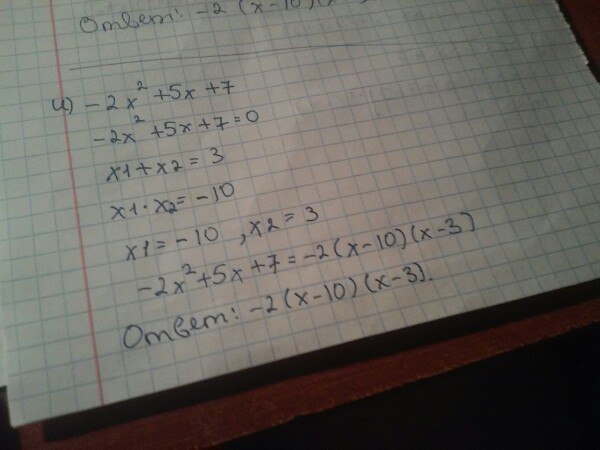 Ответ: -2 (x-10)(x
и) -2x² +5x +7
-2x² +5x +7 = 0
x1 + x2 = 3
x1 · x2 = -10
x1 = -10 , x2 = 3
-2x² +5x +7 = -2(x-10)(x-3)
Ответ: -2(x-10)(x-3).